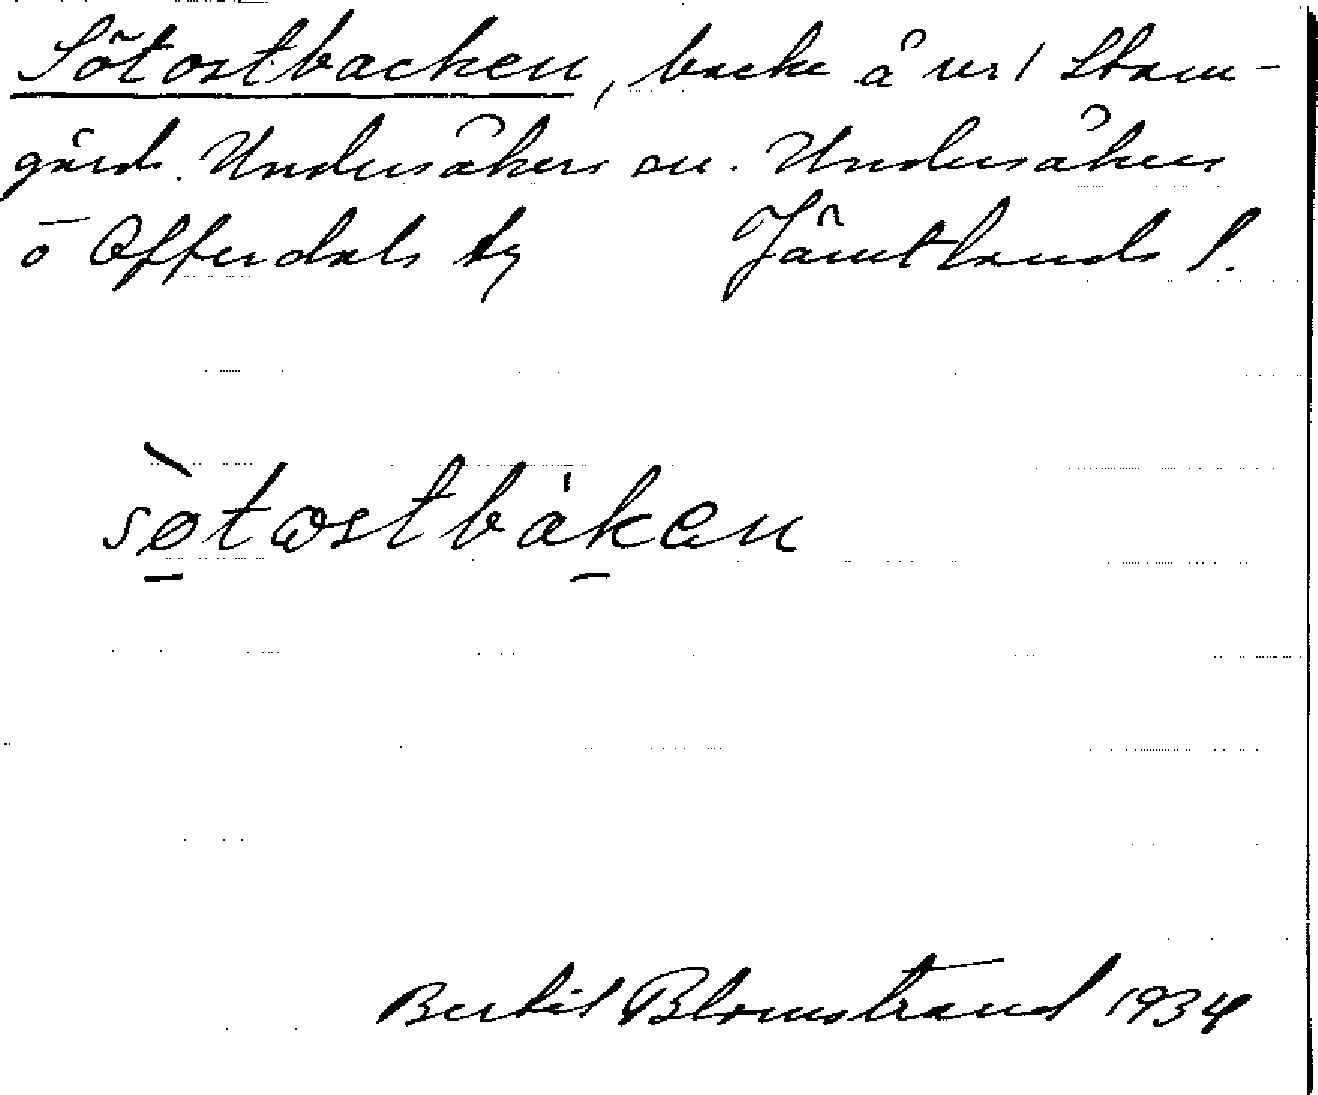 Sötostbacken, backe å nr 1 Stam-
gärde. Undersåkers sn. Undersåkers
o Offerdals tg Jämtlands l.
sø̀tωstbáken
Bertil Blomstrand 1934